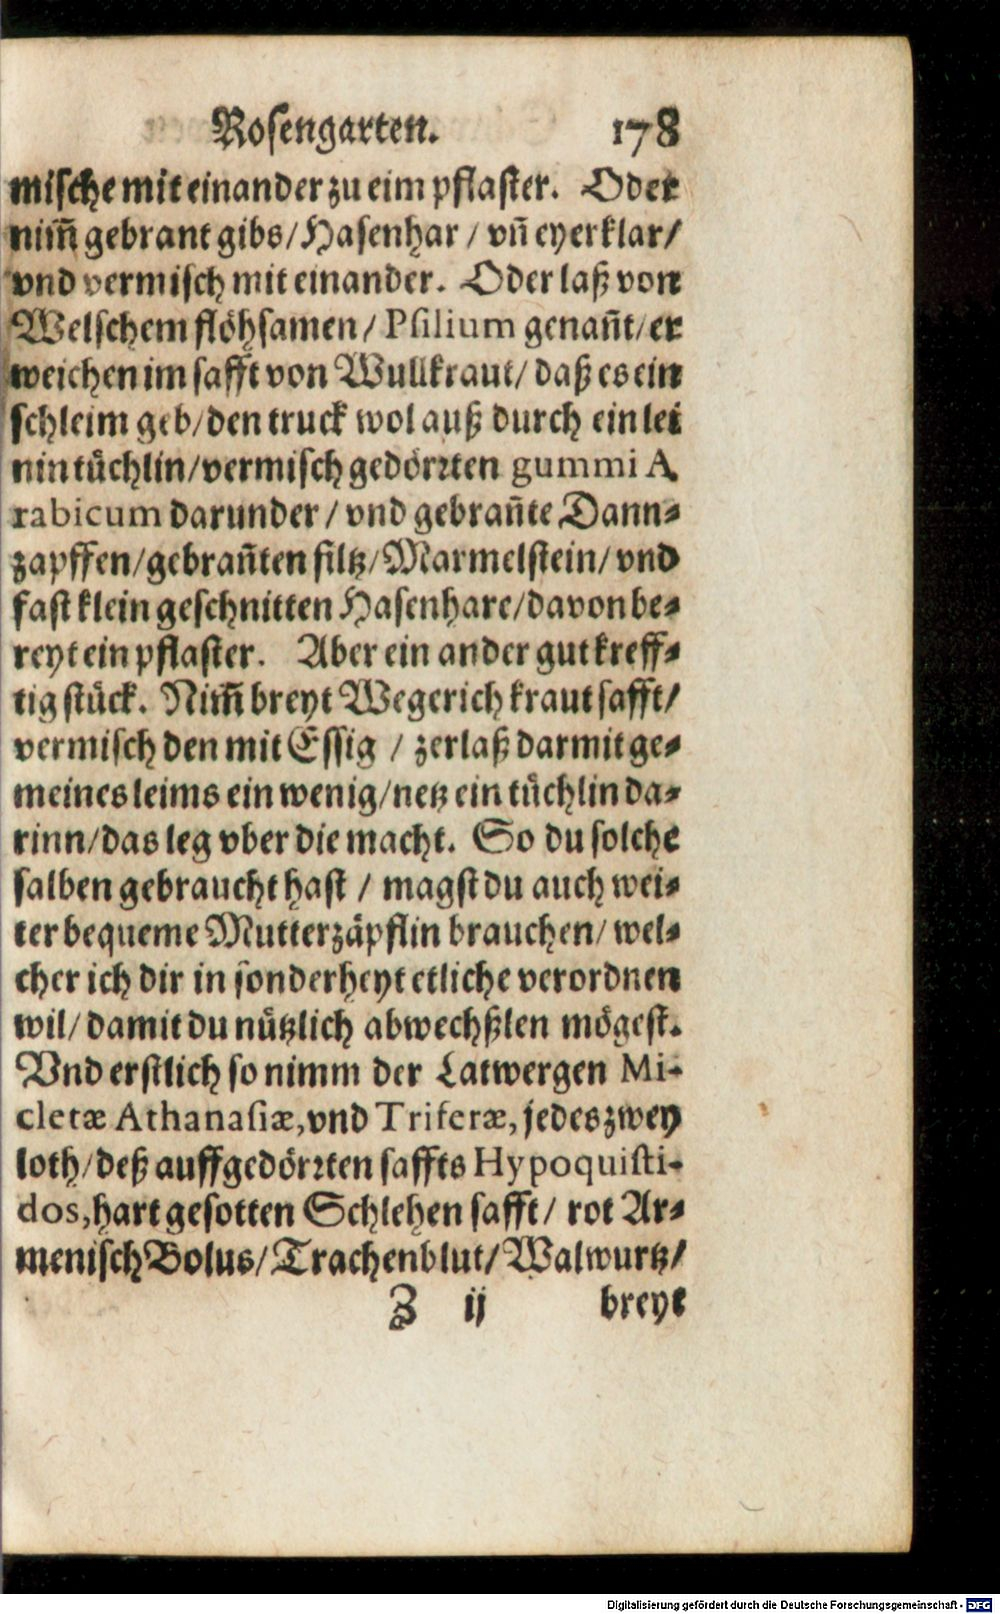 Rosengarten. 178
mische mit einander zu eim pflaster. Oder
nim̃ gebrant gibs/Hasenhar / vñ eyerklar/
vnd vermisch mit einander. Oder laß von
Welschem flöhsamen/ Psilium genañt/er
weichen im safft von Wullkraut/ daß es ein
schleim geb/den truck wol auß durch ein lei
nin tüchlin/vermisch gedörꝛten gummi A
rabicum darunder / vnd gebrañte Dann⸗
zapffen/gebrañten filtz/Marmelstein/ vnd
fast klein geschnitten Hasenhare/davon be⸗
reyt ein pflaster. Aber ein ander gut kreff⸗
tig stück. Nim̃ breyt Wegerich kraut safft/
vermisch den mit Essig / zerlaß darmit ge⸗
meines leims ein wenig/netz ein tüchlin da⸗
rinn/das leg vber die macht. So du solche
salben gebraucht hast / magst du auch wei⸗
ter bequeme Mutterzäpflin brauchen/ wel⸗
cher ich dir in sonderheyt etliche verordnen
wil/ damit du nützlich abwechßlen mögest.
Vnd erstlich so nimm der Latwergen Mi-
cletæ Athanasiæ,vnd Triferæ, jedes zwey
loth/deß auffgedörꝛten saffts Hypoquisti-
dos,hart gesotten Schlehen safft/ rot Ar⸗
menisch Bolus/Trachenblut/Walwurtz/
Z ij breyt
Digitalisierung gefördert durch die Deutsche Forschungsgemeinschaft - DFG